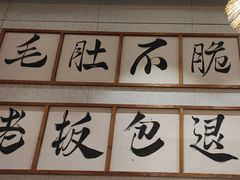 毛肚不脆
老板包退